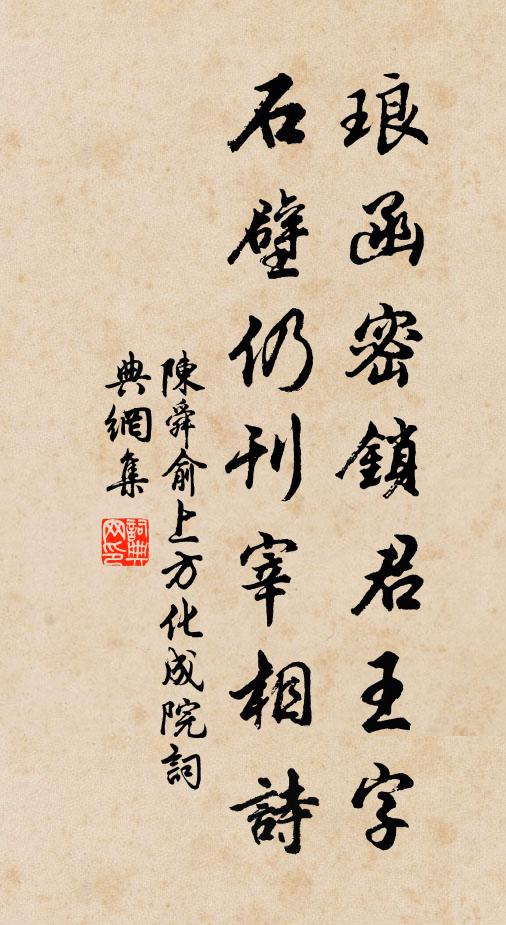 琅函密鎖君王字
石壁仍刊宰相詩
陳舜俞上方化成院詞
典網集
詞典網印